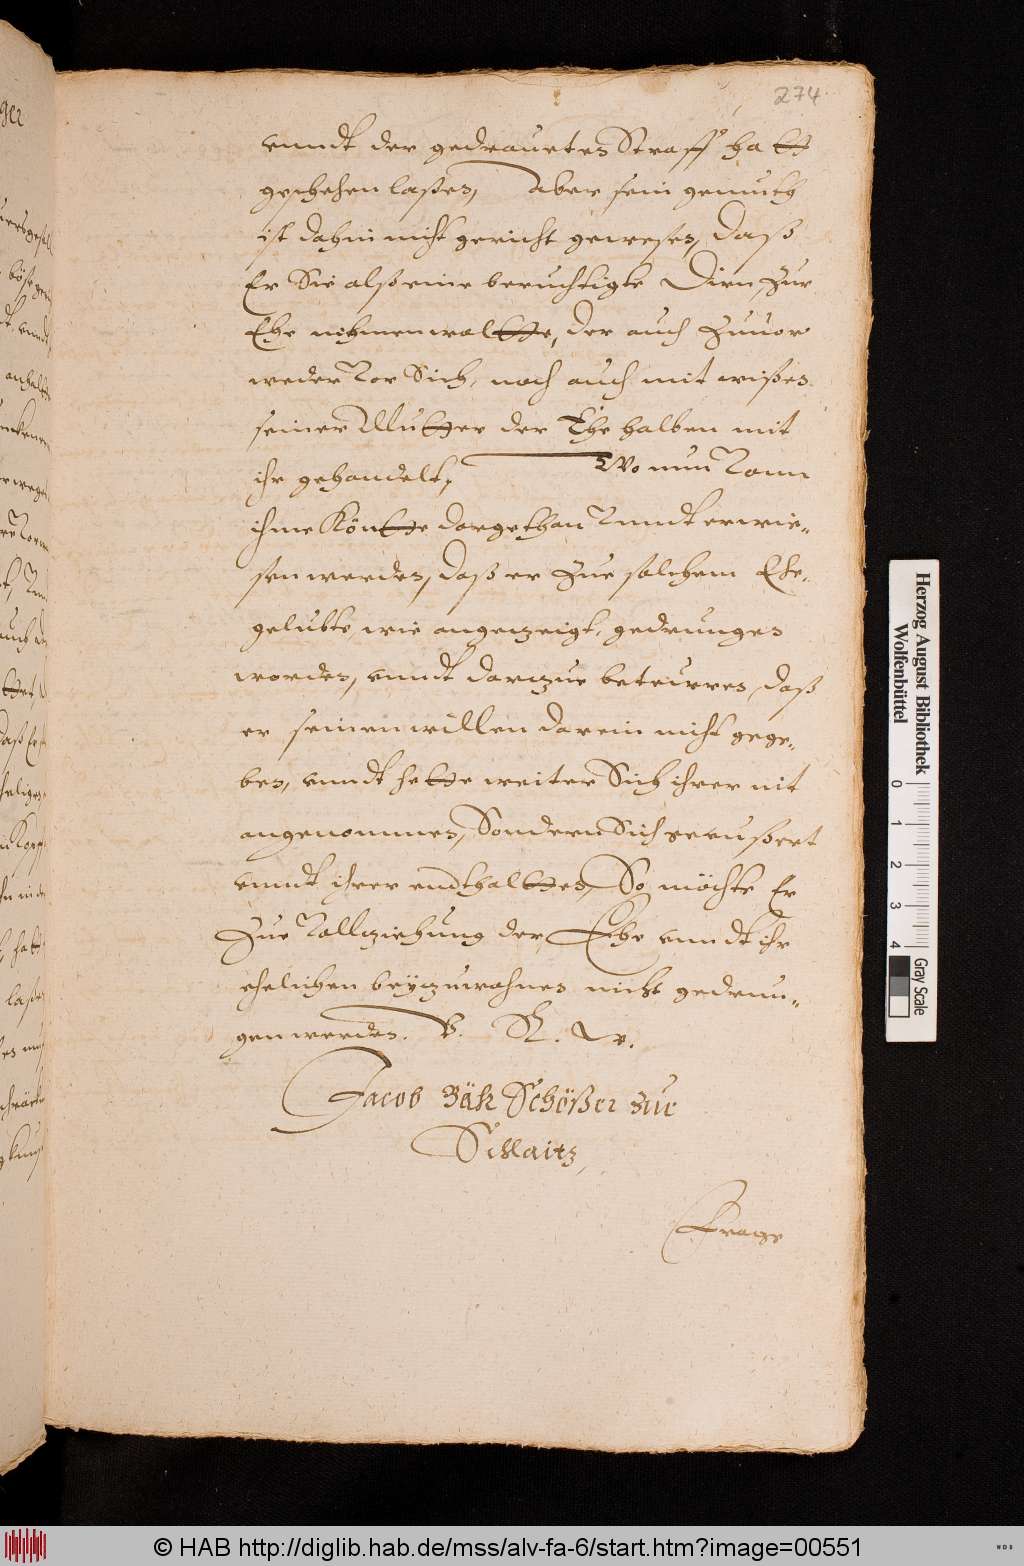 274
vnndt der gedrauetenn Straff hatt
geschehen laßen, Aber sein gemuth
ist dahin nicht gericht gewesen, Daß
Er Sie alß eine beruchtigte Dirn, Zur
Ehe nehmen wolte, der auch Zuuor
weder vor Sich, noch auch mit wißen
seiner Mutter der Ehe halben mit
ihr gehandelt, Wo nun vonn
ihme Könte dargethan vnndt erwie-
sen werden, daß er Zue solchem Ehe-
gelubte, wie angezeigt, gedrungen
worden, vnndt darzue beteurren, daß
er seinen willen darein nicht gege-
ben, vnndt hette weiter Sich ihrer nit
angenommen, Sondern Sich geeußert
vnndt ihrer endthalten, So möchte Er
Zue vollziehung der Ehe vnndt ihr
ehelichen beyzuwohnen nicht gedrun-
gen werden. V. R. W.
Jacob Schößer zur
Frage
Herzog August Bibliothek
Wolfenbüttel
0 1 2 3 4
Gray Scale
© HAB http://diglib.hab.de/mss/alv-fa-6/start.htm?image=00551
WDB